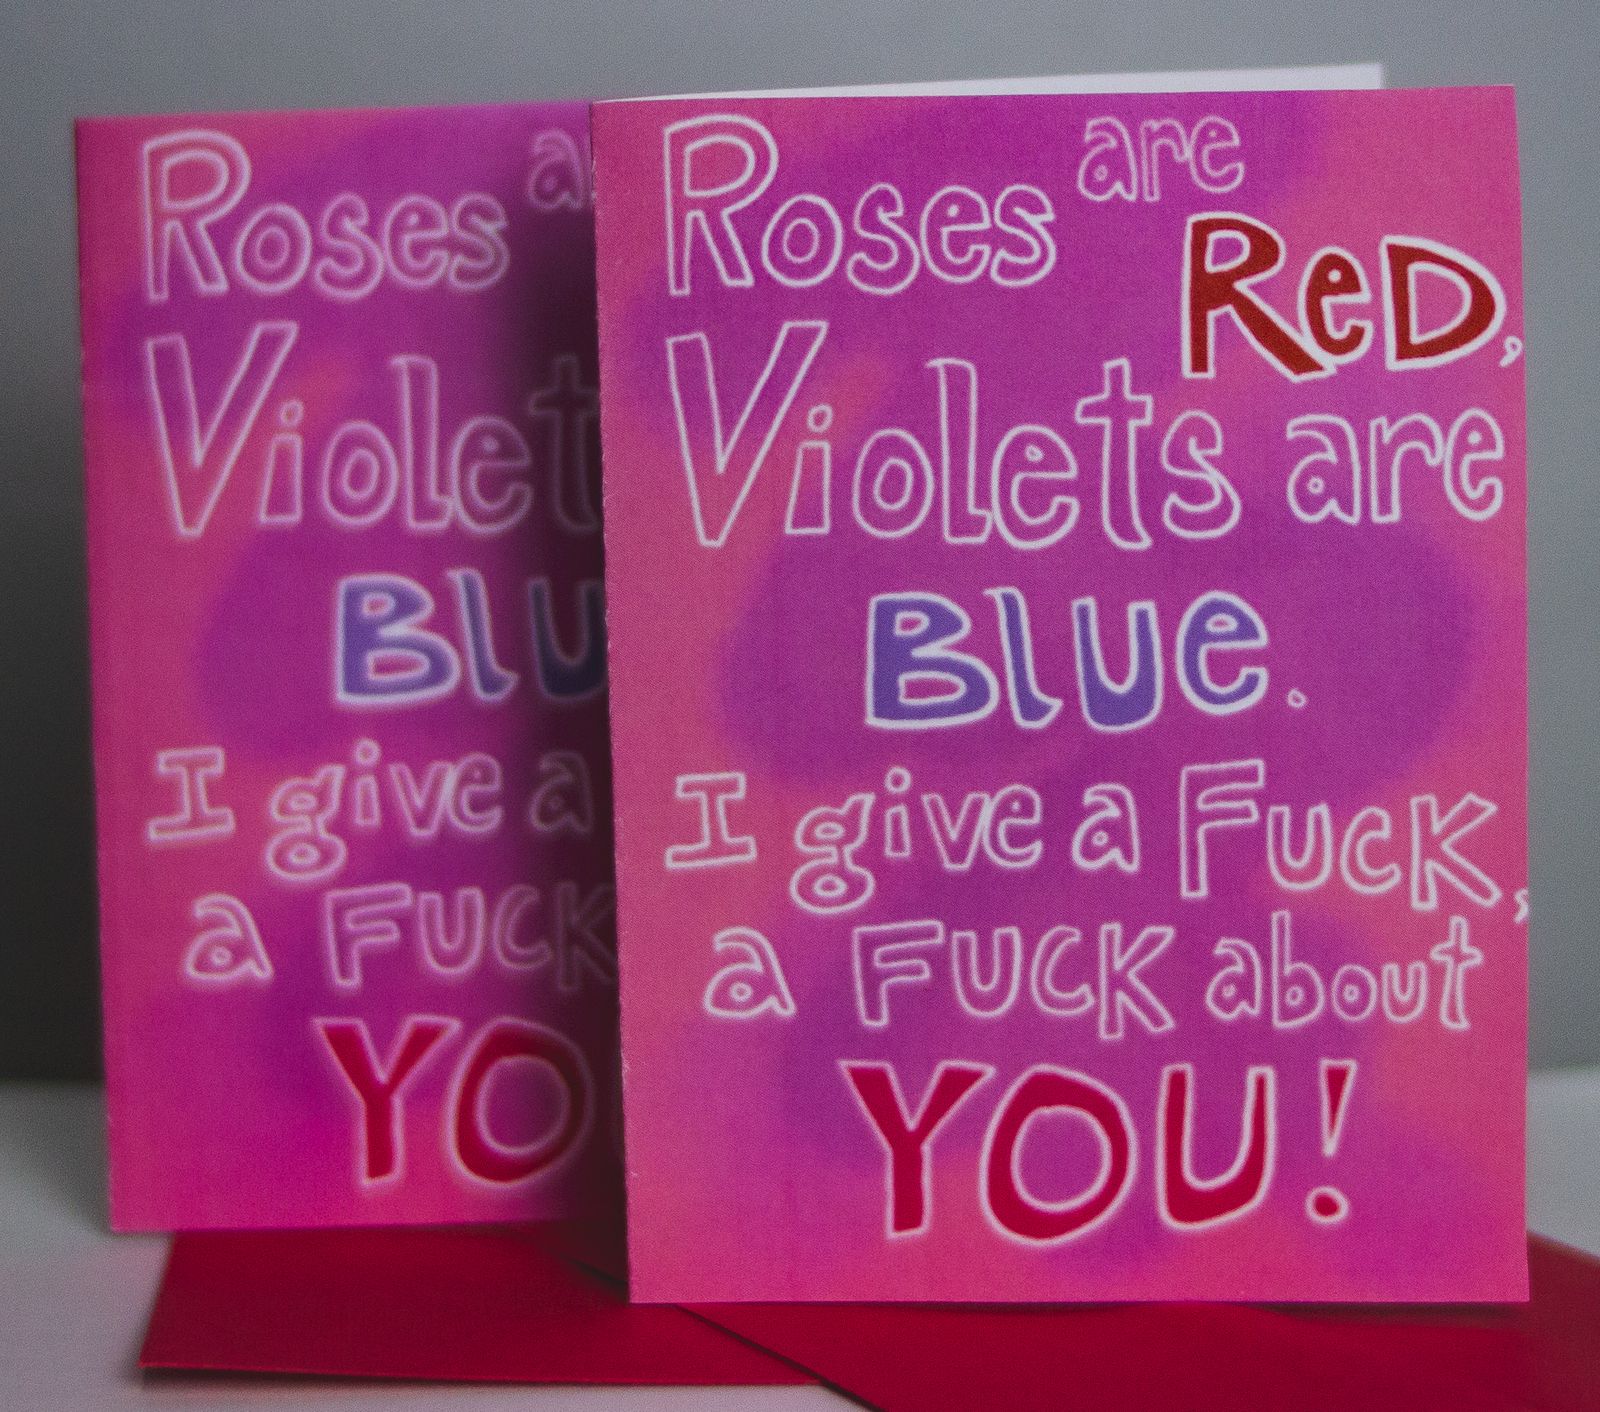 Roses are
Red,
Violets are
Blue.
I give a Fuck,
a Fuck about
YOU!
Roses a
Violet
Blu
I give a
a Fuck
YO